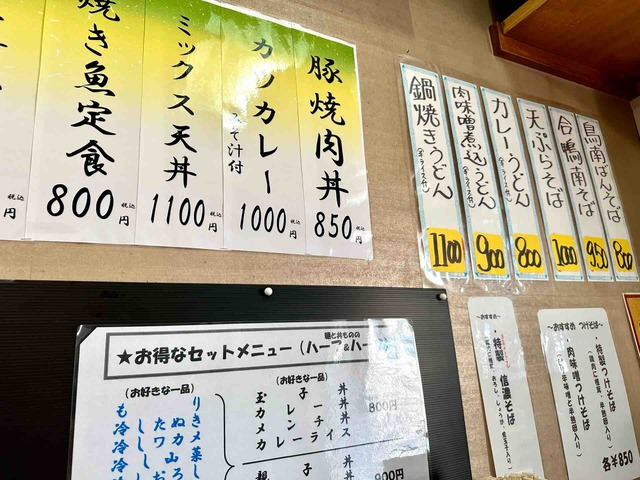 豚焼肉丼
850円
税込
カツカレー
みそ汁付
1000円
税込
ミックス天丼
1100円
税込
焼き魚定食
800円
税込
円
税込
鳥南ばんそば
800
合鴨南そば
950
天ぷらそば
1000
カレーうどん
(半ライス付)
800
肉味噌煮込うどん
(半ライス付)
900
鍋焼きうどん
(半ライス付)
1100
~おすすめ つけそば~
・特製つけそば
・肉味噌つけそば
各¥850
~おすすめ~
・特製 信濃そば
麺と丼ものの
★お得なセットメニュー(ハーフ&ハー
(お好きな一品)
玉子丼
カレー丼
メンチ丼
カレーライス
800円
親子丼
800円
(お好きな一品)
もりき
冷しぬメ
冷したカ
冷しワ山
冷しおろ